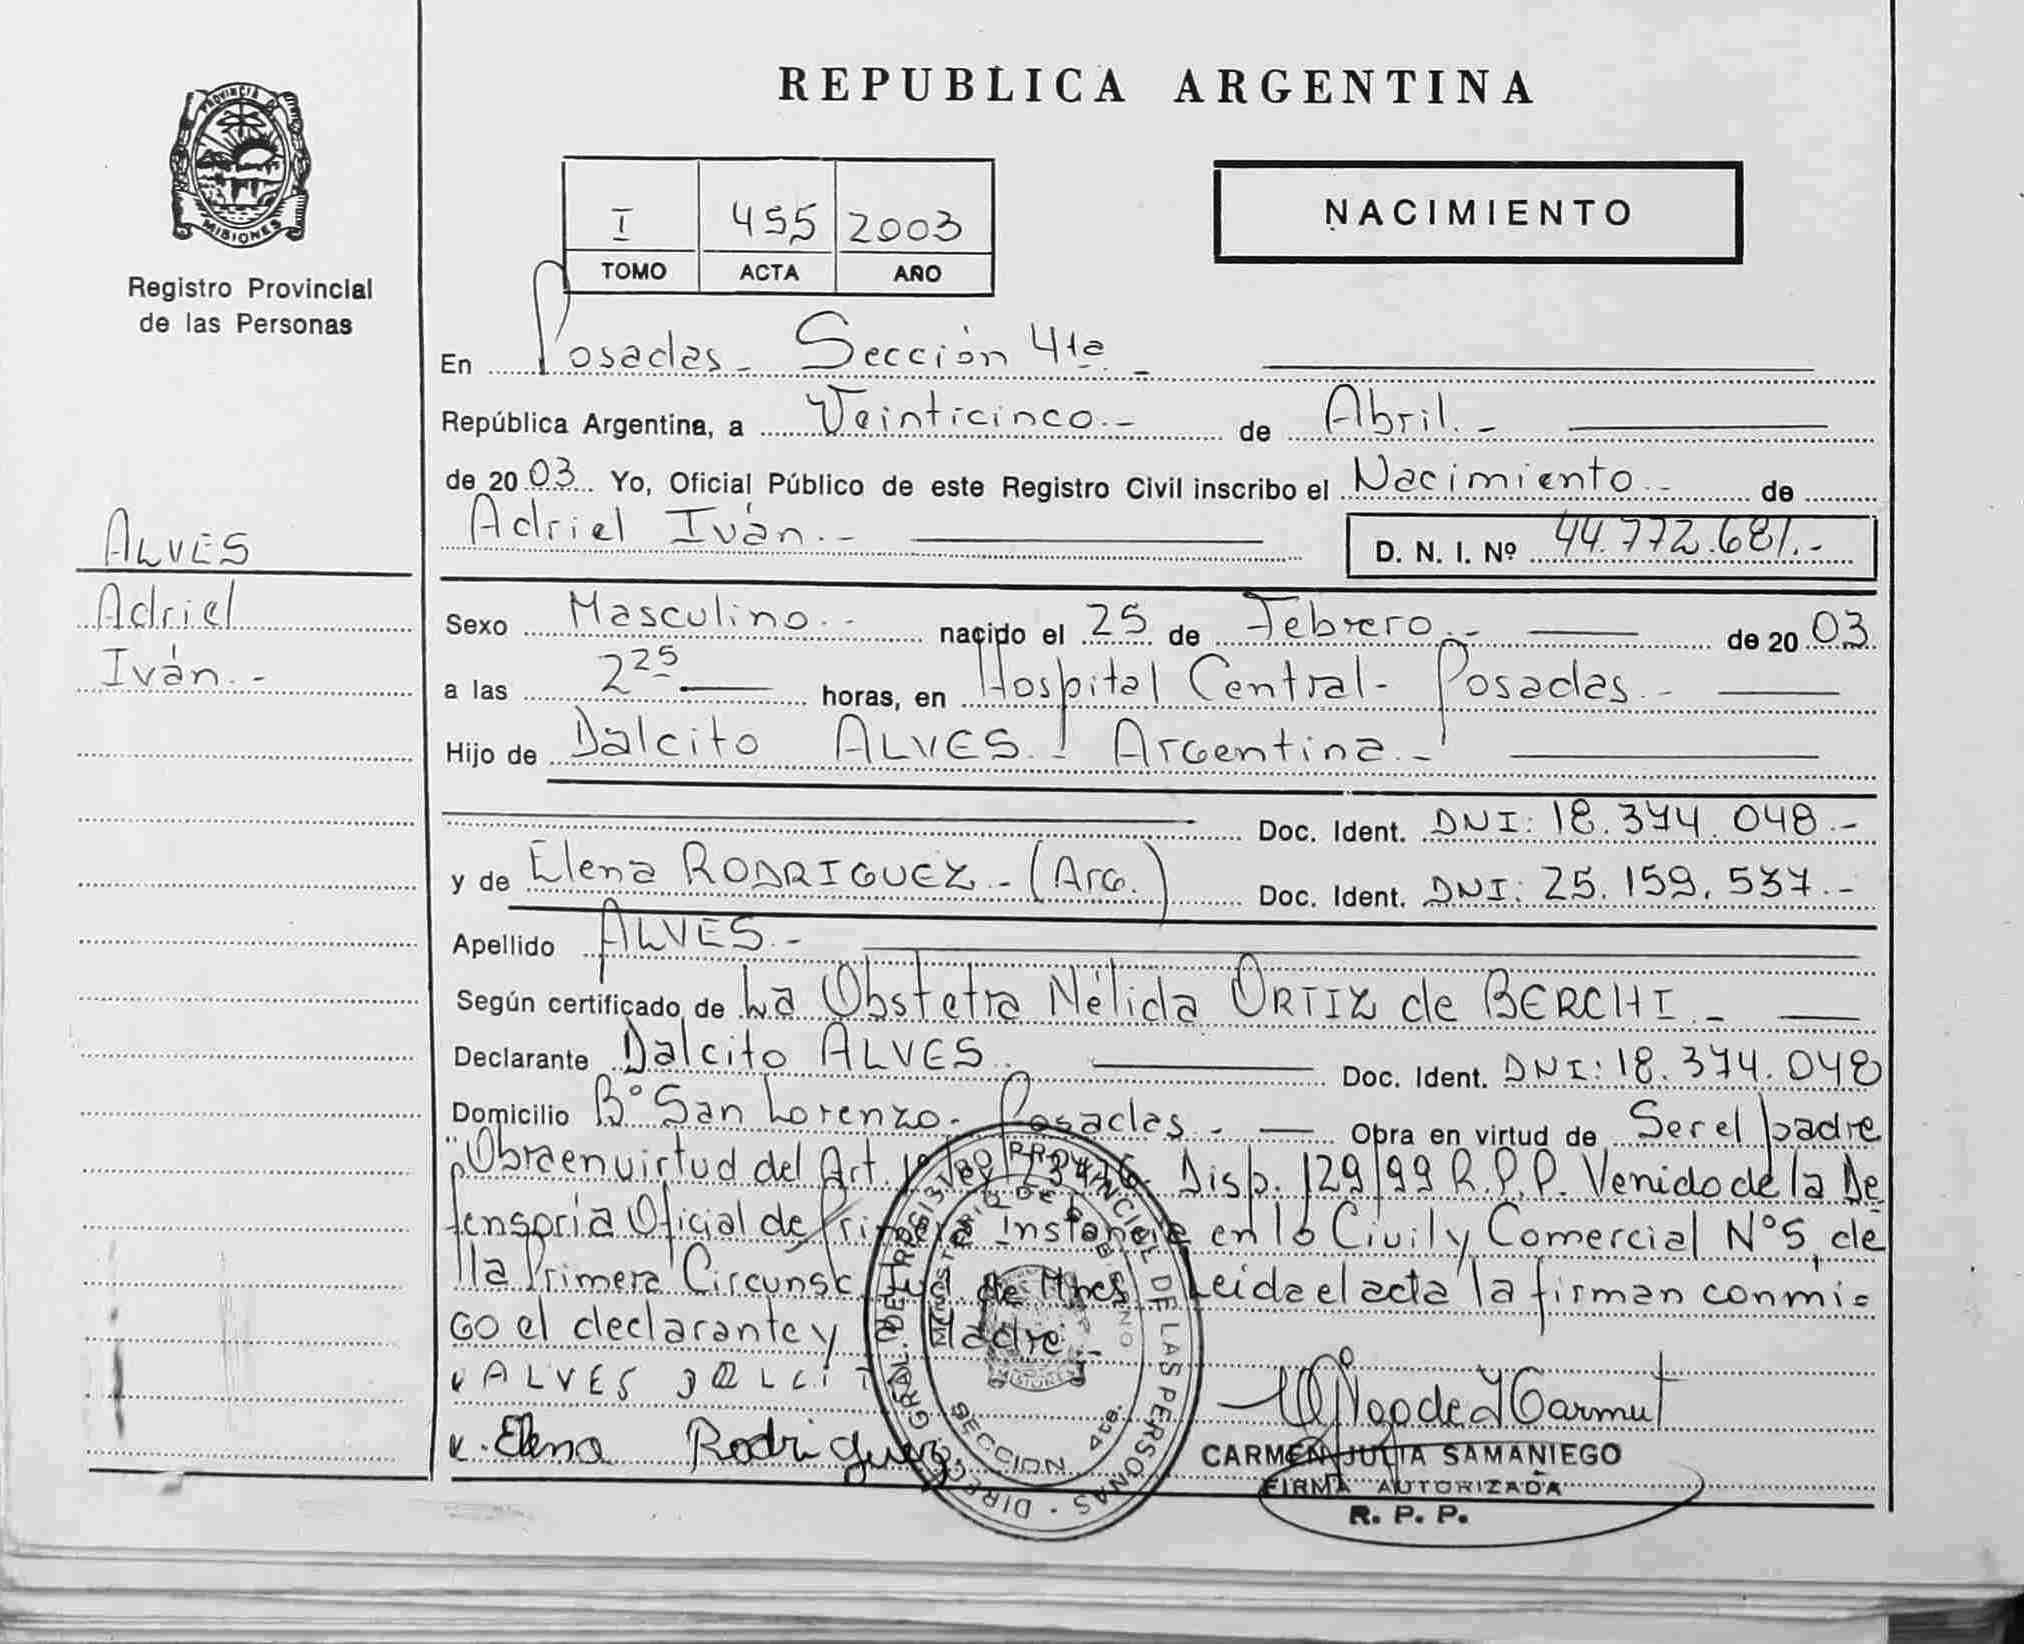 REPUBLICA ARGENTINA
PROVINCIA DE
MISIONES
Registro Provincial
de las Personas
NACIMIENTO
I 455 2003
TOMO ACTA AÑO
En Posadas - Sección 4ta. -
República Argentina, a Veinticinco.- de Abril.-
de 2003. Yo, Oficial Público de este Registro Civil inscribo el Nacimiento.- de
Adriel Iván.- D. N. I. Nº 44.772.681.-
ALVES
Adriel
Iván.-
Sexo Masculino.- nacido el 25 de Febrero.- de 2003.
a las 2 25 horas, en Hospital Central- Posadas.-
Hijo de Dalcito ALVES.- Argentina.-
Doc. Ident. DNI: 18.374.048.-
y de Elena RODRIGUEZ.- (Arg.) Doc. Ident. DNI: 25.159.537.-
Apellido ALVES.-
Según certificado de La Obstetra Nélida ORTIZ de BERCHI.-
Declarante Dalcito ALVES. Doc. Ident. DNI: 18.374.048
Domicilio Bº San Lorenzo- Posadas.- Obra en virtud de Ser el padre
"Obra en virtud del Art. Disp. 129/99 R.P.P. Venido de la De
fensoría Oficial de Primera Instancia en lo Civil y Comercial Nº5, de
lla Primera Circunsc. Jud. de Mnes. Leida el acta la firman conmi=
go el declarante y Madre.-
ALVES DALCIT
Elena Rodriguez
DIREC. GRAL. DEL REGISTRO PROVINCIAL DE LAS PERSONAS
MINISTERIO DE GOBIERNO
MISIONES
SECCION 4ta.
CARMEN JULIA SAMANIEGO
FIRMA AUTORIZADA
R. P. P.